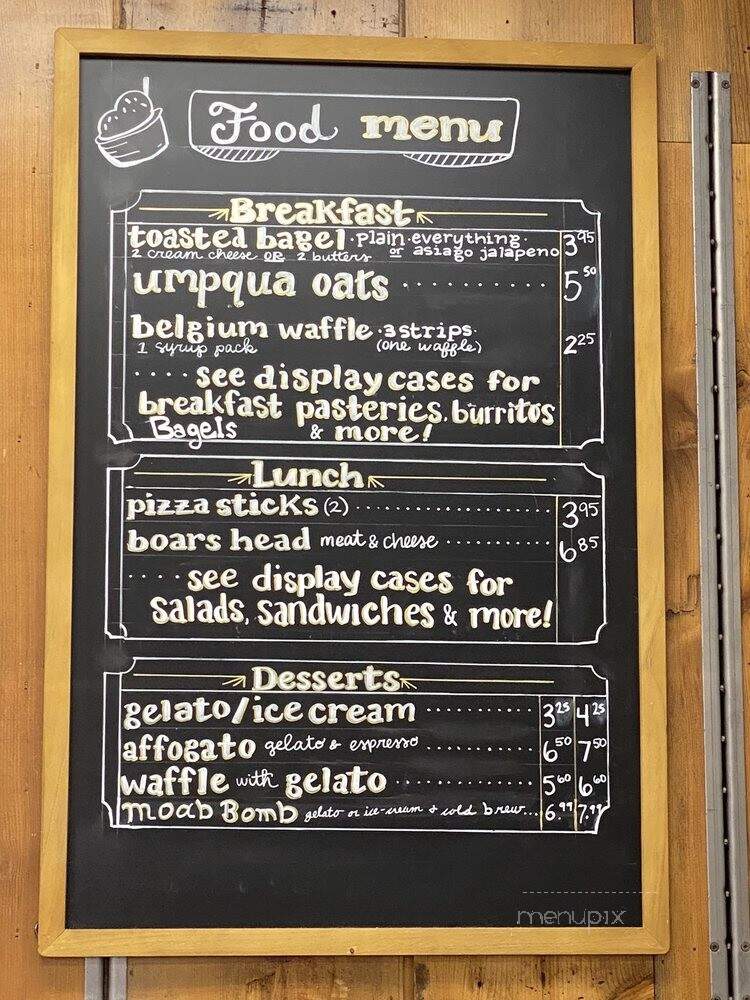 Food menu
Breakfast
toasted bagel · plain · everything · 3.95
2 cream cheese OR 2 butters or asiago jalapeno
umpqua oats .......... 5.50
belgium waffle · 3 strips · 2.25
1 syrup pack (one waffle)
.... see display cases for
breakfast pasteries, burritos
Bagels & more!
Lunch
pizza sticks (2) .......... 3.95
boars head meat & cheese .......... 6.85
.... see display cases for
salads, sandwiches & more!
Desserts
gelato/ice cream .......... 3.25 4.25
affogato gelato & espresso .......... 6.50 7.50
waffle with gelato .......... 5.60 6.60
moab Bomb gelato or ice-cream + cold brew... 6.99 7.99
menupix